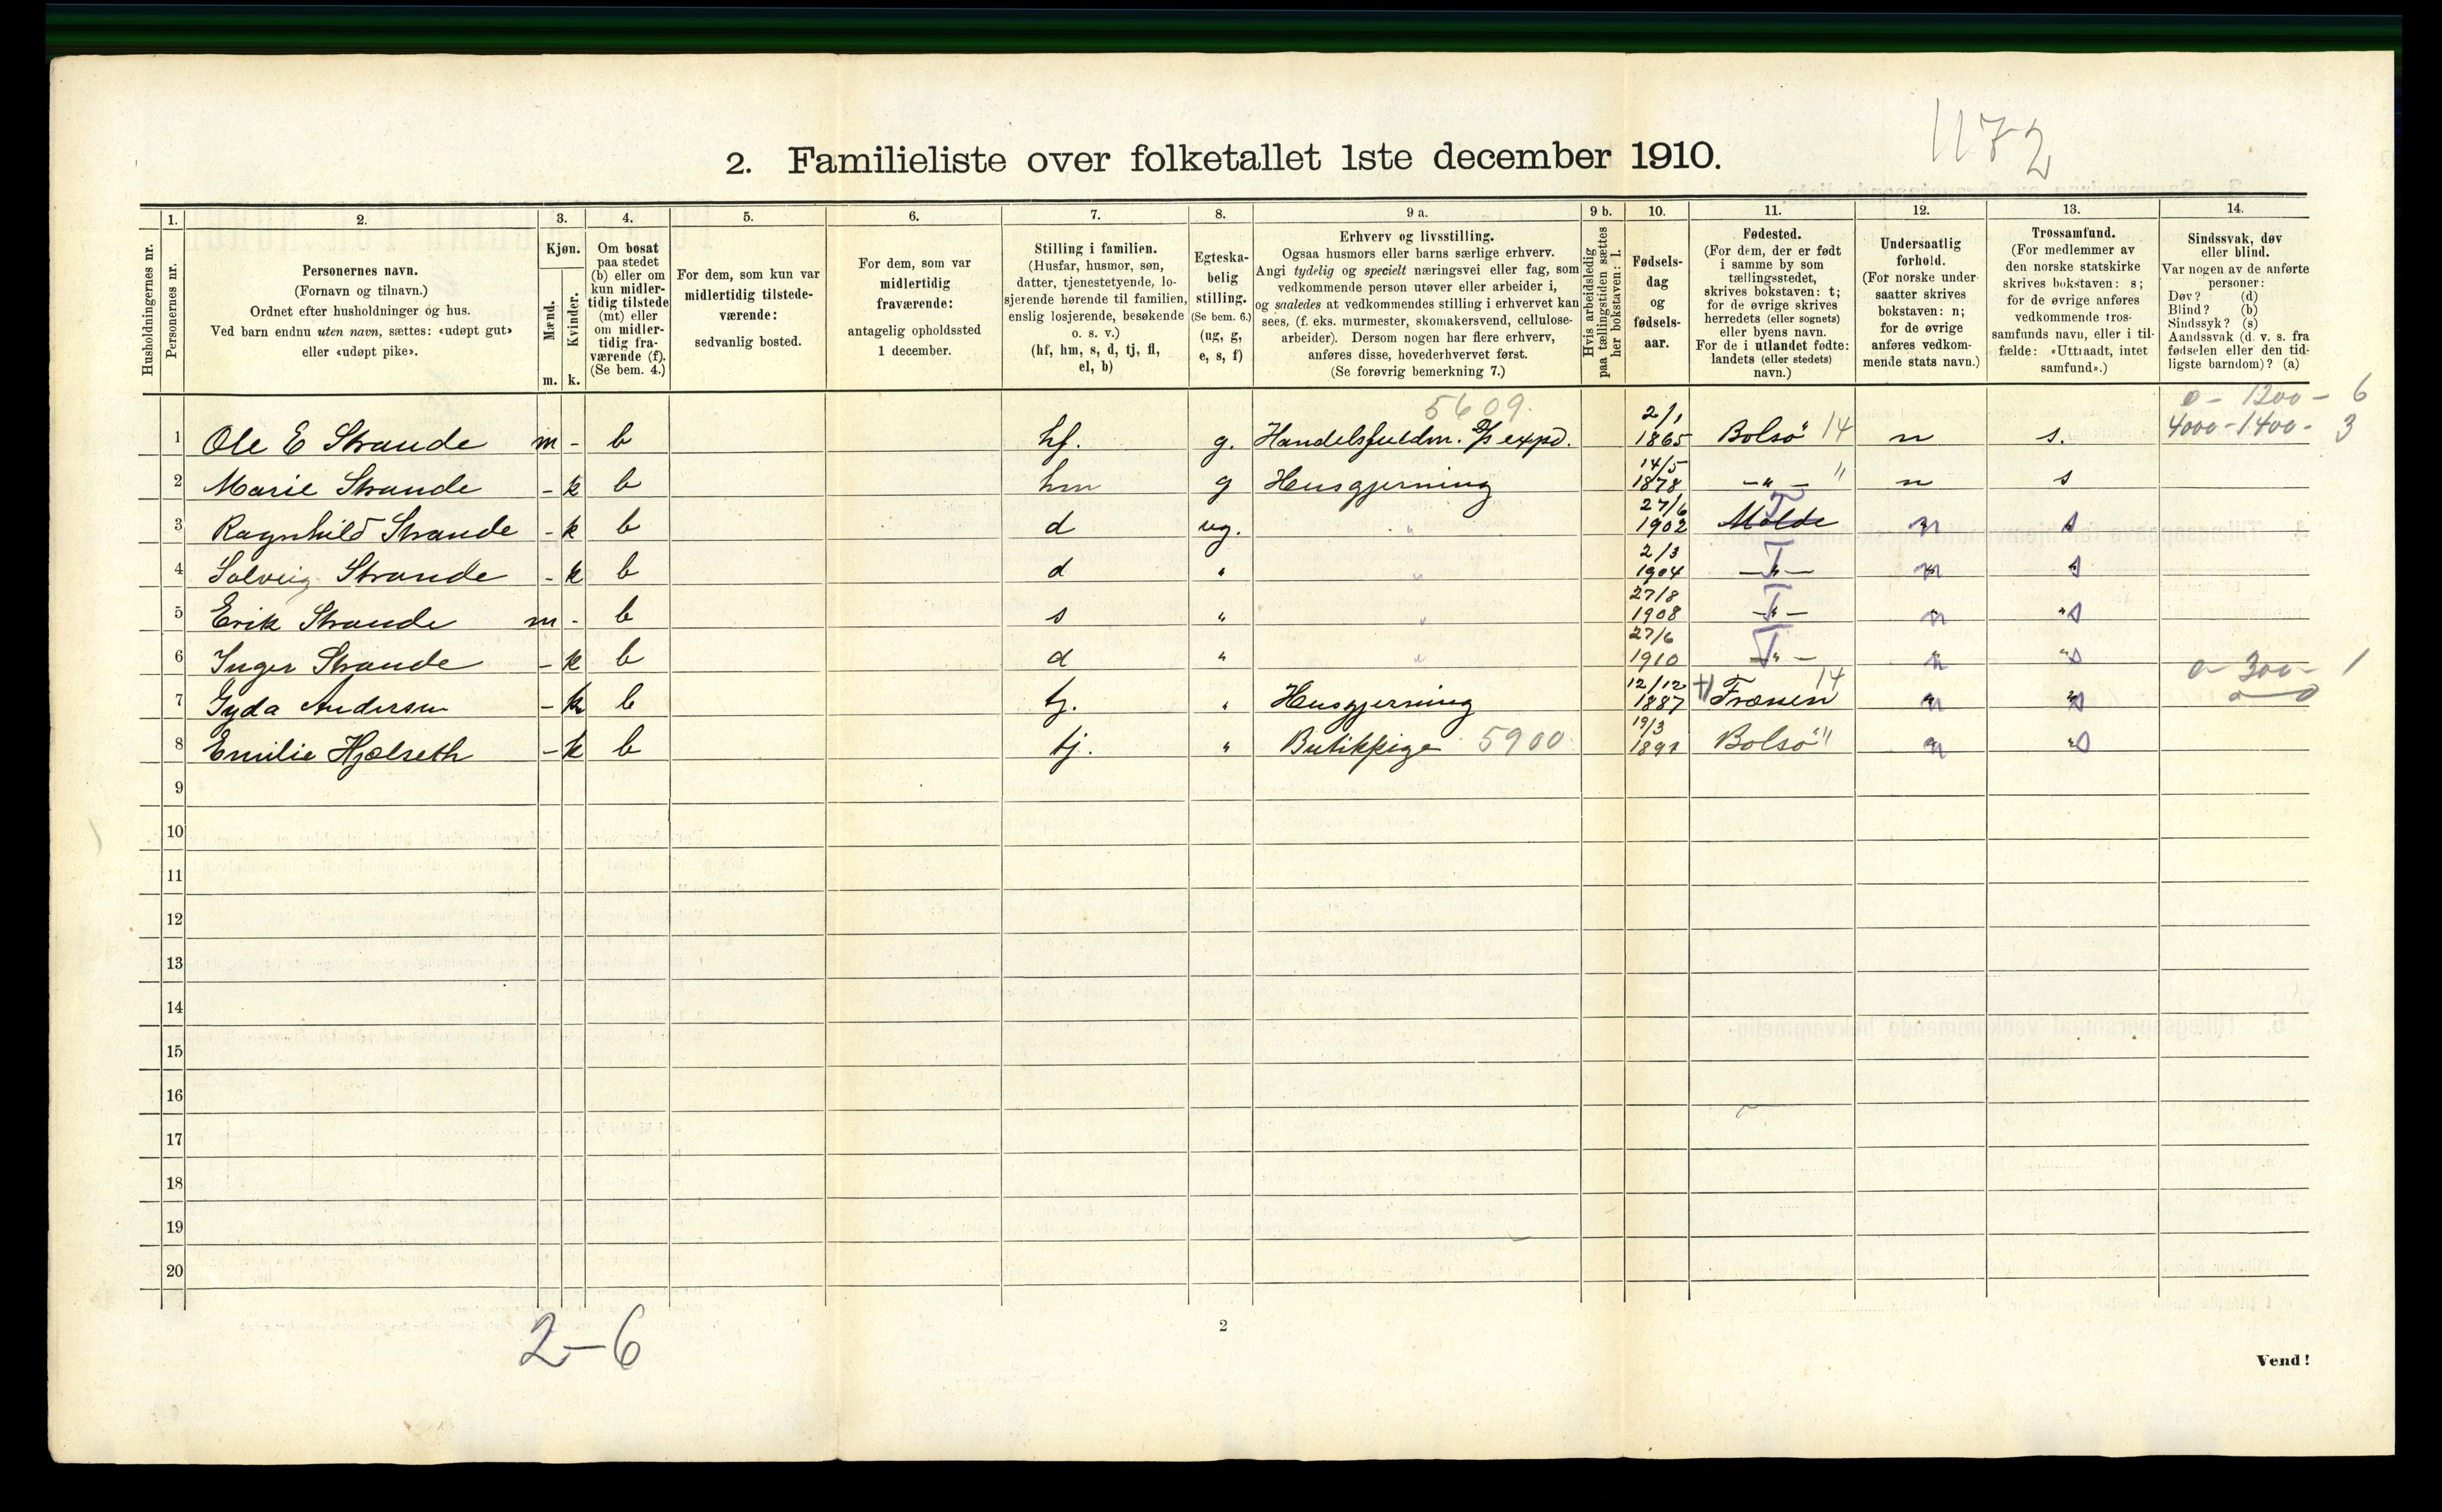 1172
2. Familieliste over folketallet 1ste december 1910.
1. 2. 3. 4. 5. 6. 7. 8. 9 a. 9 b. 10. 11. 12. 13. 14.
Husholdningernes nr.
Personernes nr.
Personernes navn.
(Fornavn og tilnavn.)
Ordnet efter husholdninger og hus.
Ved barn endnu uten navn, sættes: «udøpt gut»
eller «udøpt pike».
Kjøn.
Mænd.
Kvinder.
m. k.
Om bosat
paa stedet
(b) eller om
kun midler-
tidig tilstede
(mt) eller
om midler-
tidig fra-
værende (f).
(Se bem. 4.)
For dem, som kun var
midlertidig tilstede-
værende:
sedvanlig bosted.
For dem, som var
midlertidig
fraværende:
antagelig opholdssted
1 december.
Stilling i familien.
(Husfar, husmor, søn,
datter, tjenestetyende, lo-
sjerende hørende til familien,
enslig losjerende, besøkende
o. s. v.)
(hf, hm, s, d, tj, fl,
el, b)
Egteska-
belig
stilling.
(Se bem. 6.)
(ug, g,
e, s, f)
Erhverv og livsstilling.
Ogsaa husmors eller barns særlige erhverv.
Angi tydelig og specielt næringsvei eller fag, som
vedkommende person utøver eller arbeider i,
og saaledes at vedkommendes stilling i erhvervet kan
sees, (f. eks. murmester, skomakersvend, cellulose-
arbeider). Dersom nogen har flere erhverv,
anføres disse, hovederhvervet først.
(Se forøvrig bemerkning 7.)
Hvis arbeidsledig
paa tællingstiden sættes
her bokstaven: l.
Fødsels-
dag
og
fødsels-
aar.
Fødested.
(For dem, der er født
i samme by som
tællingsstedet,
skrives bokstaven: t;
for de øvrige skrives
herredets (eller sognets)
eller byens navn.
For de i utlandet fødte:
landets (eller stedets)
navn.)
Undersaatlig
forhold.
(For norske under-
saatter skrives
bokstaven: n;
for de øvrige
anføres vedkom-
mende stats navn.)
Trossamfund.
(For medlemmer av
den norske statskirke
skrives bokstaven: s;
for de øvrige anføres
vedkommende tros-
samfunds navn, eller i til-
fælde: «Uttraadt, intet
samfund».)
Sindssvak, døv
eller blind.
Var nogen av de anførte
personer:
Døv? (d)
Blind? (b)
Sindssyk? (s)
Aandssvak (d. v. s. fra
fødselen eller den tid-
ligste barndom)? (a)
5609. 0 - 1200 - 6
1 Ole E Strande m - b hf. g. Handelsfuldm. D/S expd. 2/1 1865 Bolsö 14 n s. 4000 - 1400 - 3
2 Marie Strande - k b hm g Husgjerning 14/5 1878 -"- " n s
3 Ragnhild Strande - k b d ug. " 27/6 1902 Molde T n s
4 Solveig Strande - k b d " " 2/3 1904 -"- T n s
5 Erik Strande m - b s " " 27/8 1908 -"- T n s
6 Inger Strande - k b d " " 27/6 1910 -"- T n s
0 - 300 - 1
7 Gyda Andersen - k b tj. " Husgjerning 12/12 1887 Frænen 14 n s 0 - 0
8 Emilie Hjælseth - k b tj. " Butikpige 5900 19/3 1891 Bolsö " n s
9
10
11
12
13
14
15
16
17
18
19
20
2-6
2
Vend!